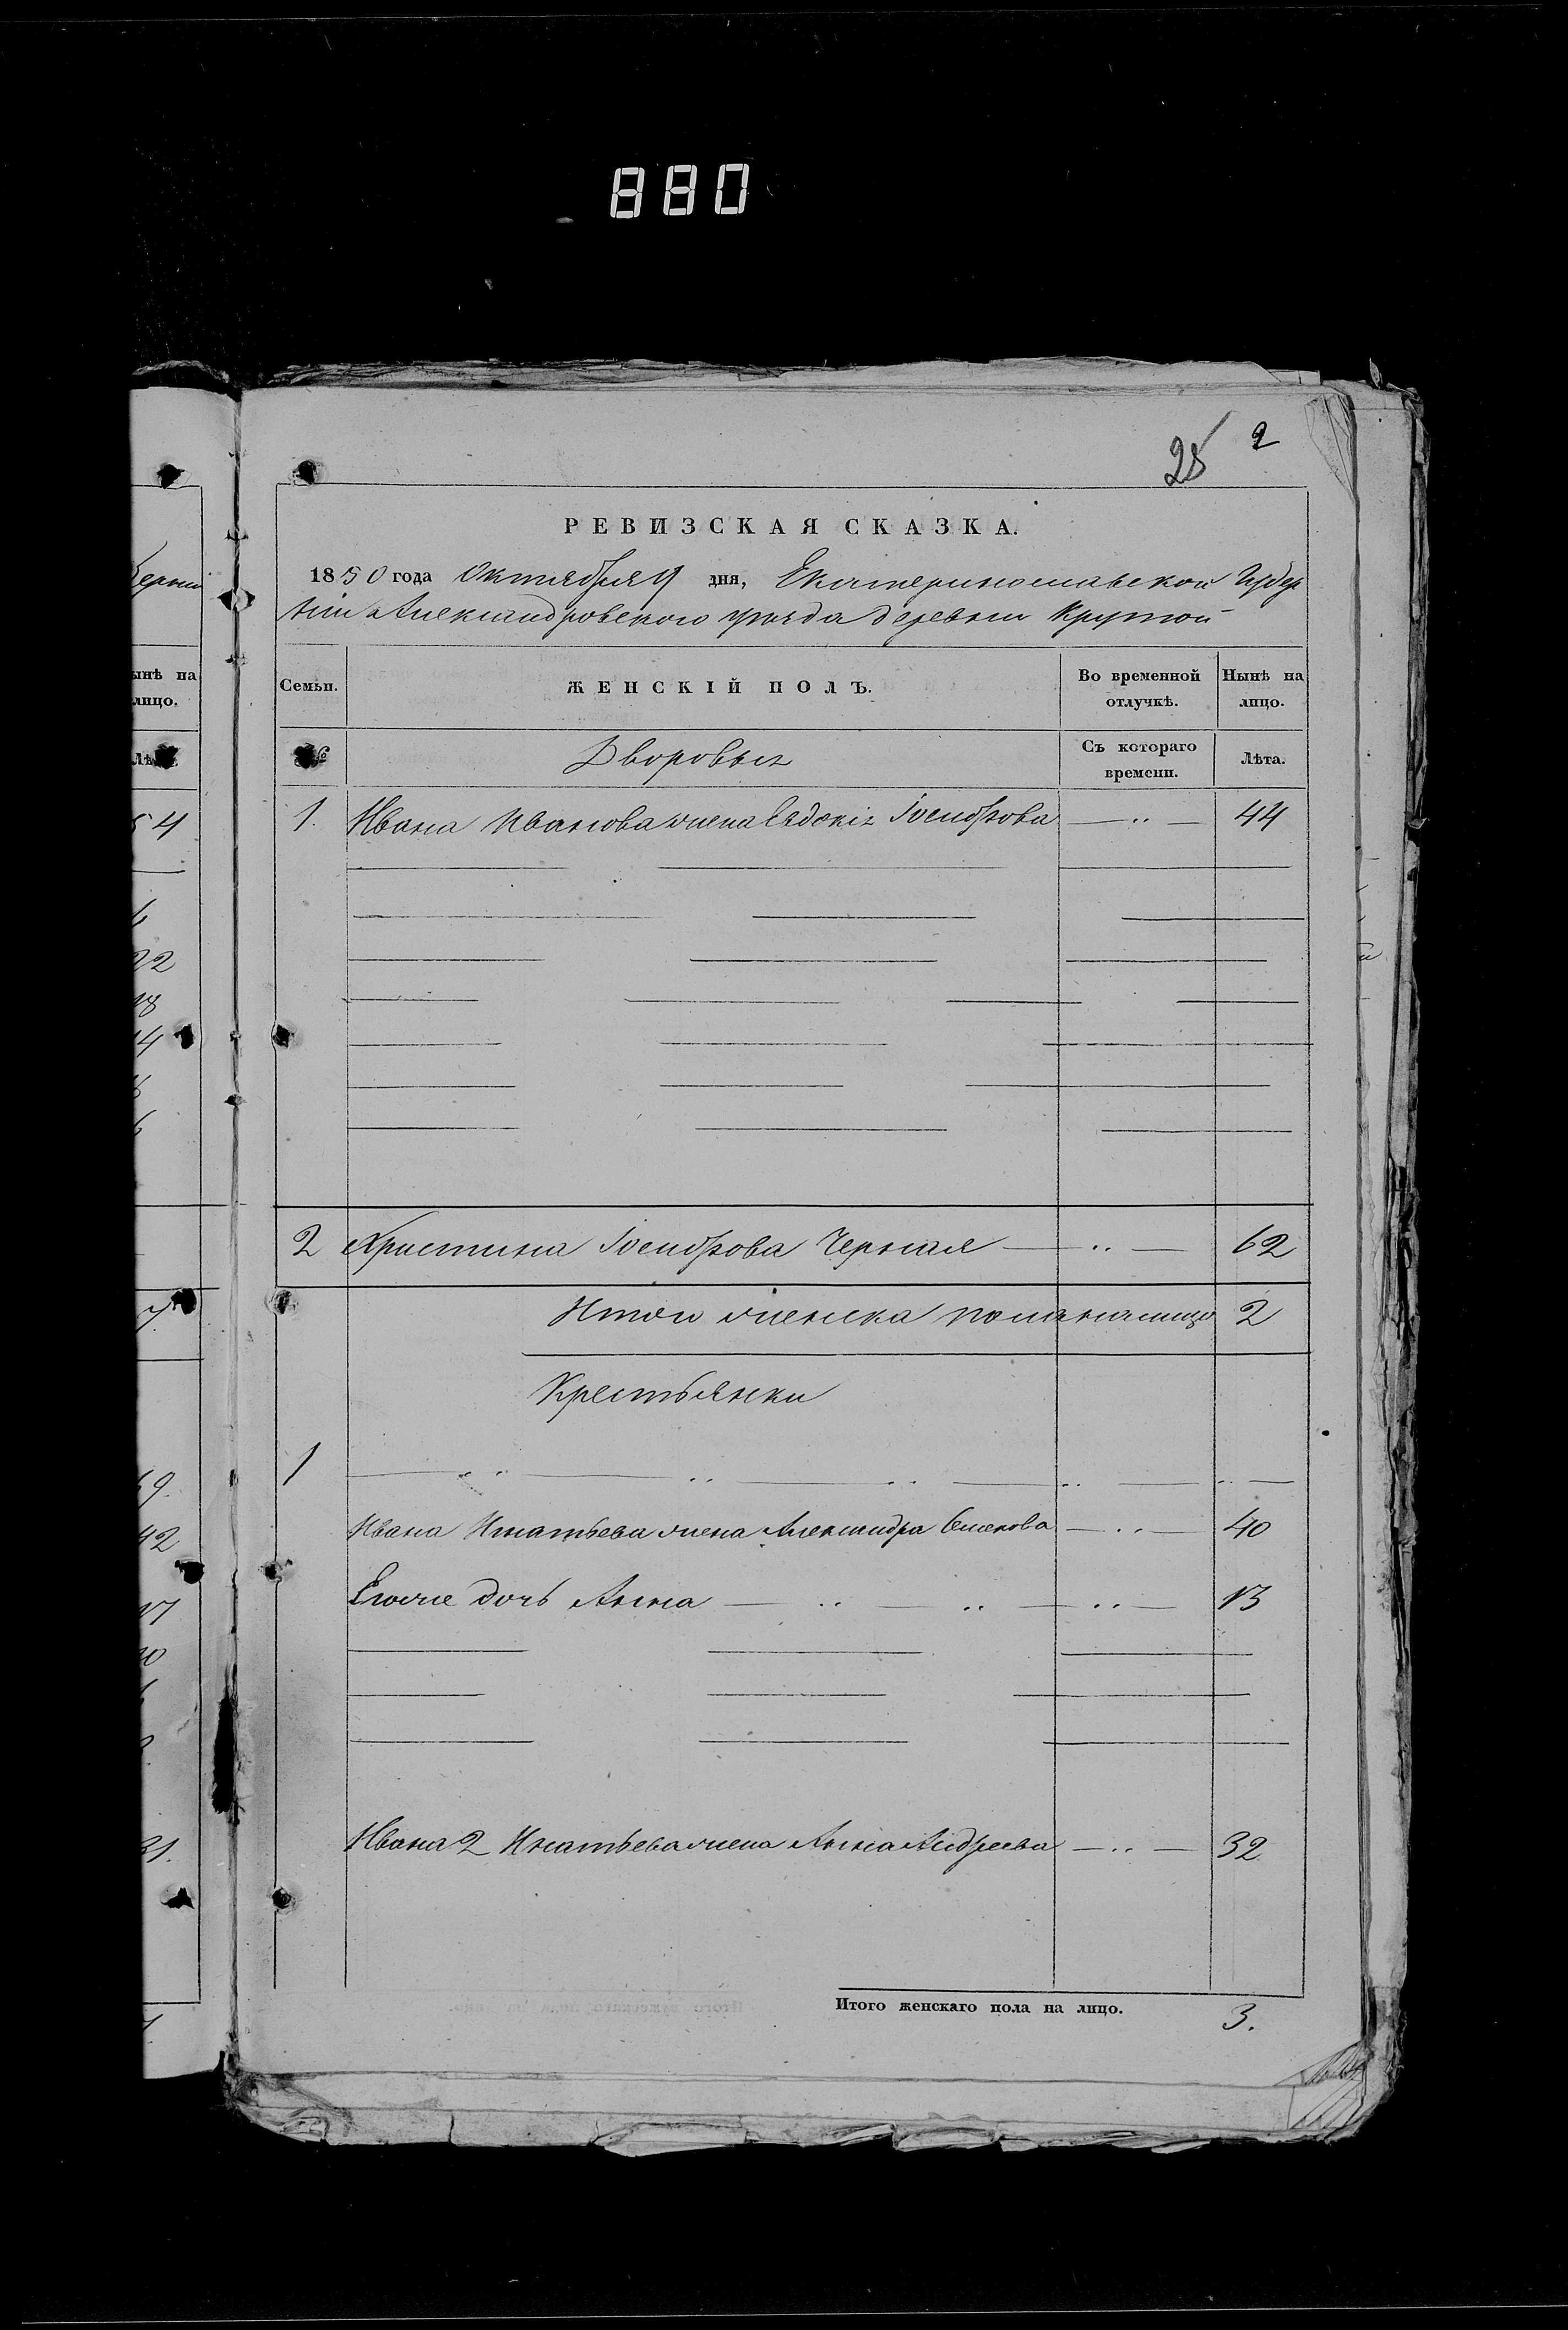 880
25 2
РЕВИЗСКАЯ СКАЗКА.
1850 года Октября 9 дня, Екатеринославской Губер
ніи Александровского уѣзда деревни Крутой
Семьи. ЖЕНСКІЙ ПОЛЪ. Во временной отлучкѣ. Нынѣ на лицо.
№ Дворовых Съ котораго времени. Лѣта.
1. Ивана Иванова жена Евдокія Іосифова 44
2 Христина Іосифова Черная 62
Итого женска пола на лицо 2
Крестьянки
1
Ивана Игнатьева жена Александра 40
Егоже дочь Анна 13
Ивана 2 Игнатьева жена Анна Андреева 32
Итого женскаго пола на лицо. 3.
ынѣ на
лицо.
54
22
18
14
42
17
31.